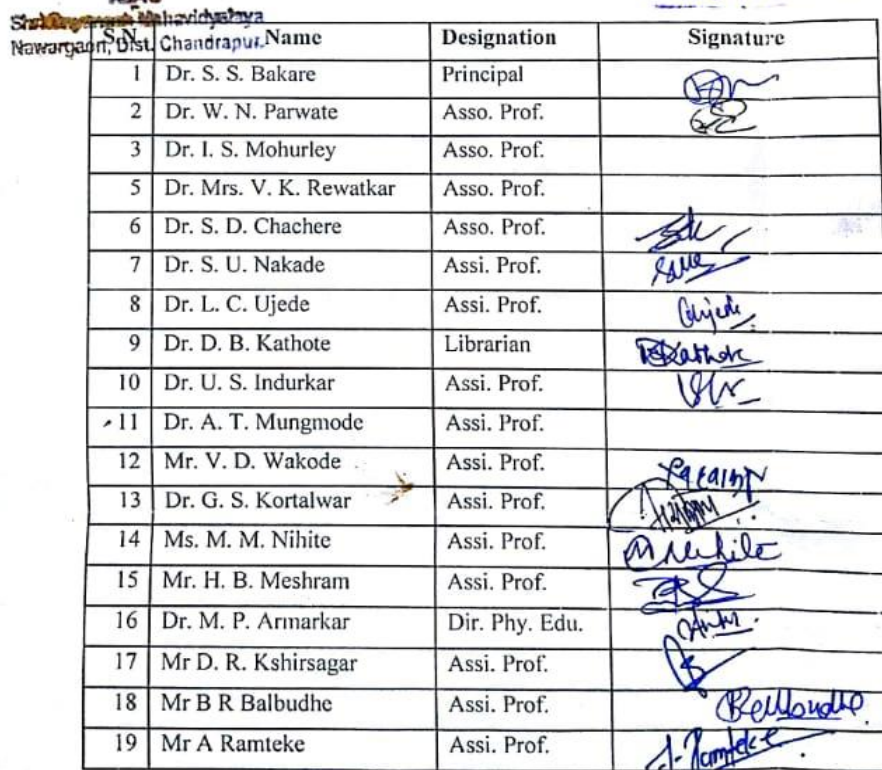 Mahavidyalaya
Nawargaon, Dist. Chandrapur.
S.N. Name Designation Signature
1 Dr. S. S. Bakare Principal
2 Dr. W. N. Parwate Asso. Prof.
3 Dr. I. S. Mohurley Asso. Prof.
5 Dr. Mrs. V. K. Rewatkar Asso. Prof.
6 Dr. S. D. Chachere Asso. Prof.
7 Dr. S. U. Nakade Assi. Prof.
8 Dr. L. C. Ujede Assi. Prof.
9 Dr. D. B. Kathote Librarian
10 Dr. U. S. Indurkar Assi. Prof.
11 Dr. A. T. Mungmode Assi. Prof.
12 Mr. V. D. Wakode Assi. Prof.
13 Dr. G. S. Kortalwar Assi. Prof.
14 Ms. M. M. Nihite Assi. Prof.
15 Mr. H. B. Meshram Assi. Prof.
16 Dr. M. P. Armarkar Dir. Phy. Edu.
17 Mr D. R. Kshirsagar Assi. Prof.
18 Mr B R Balbudhe Assi. Prof.
19 Mr A Ramteke Assi. Prof.